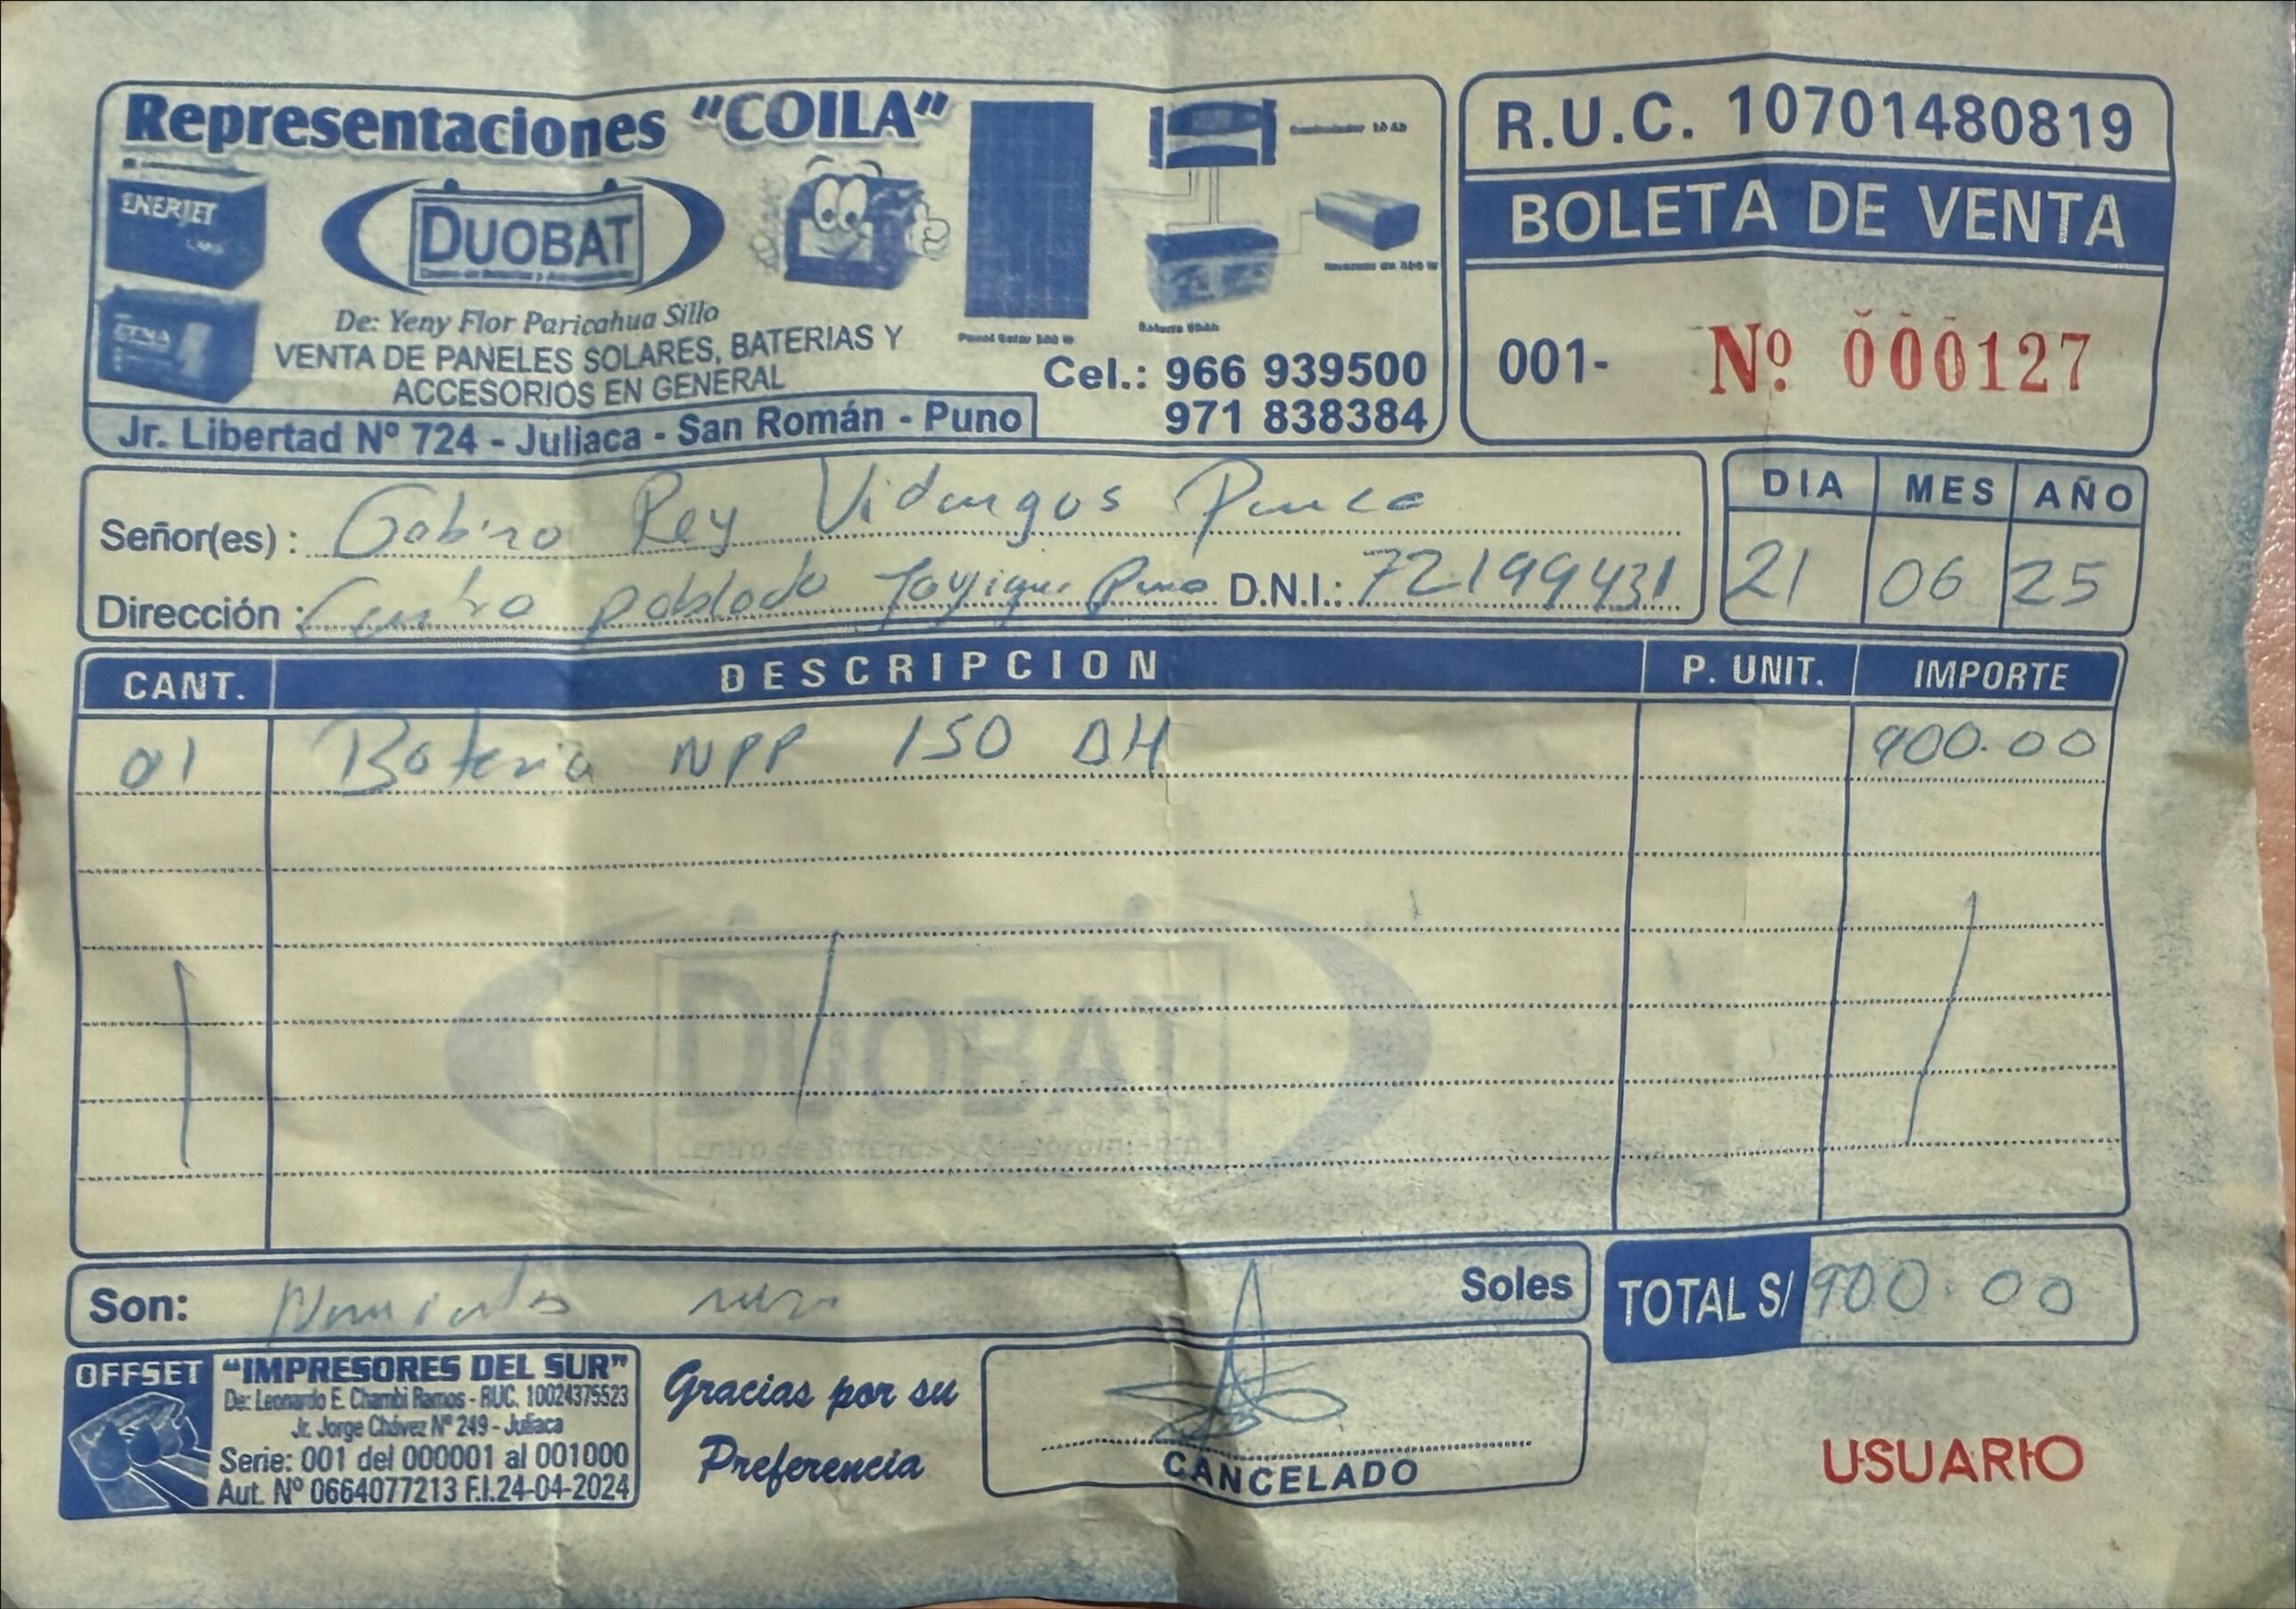 Representaciones "COILA"
ENERJET
DUOBAT
De: Yeny Flor Paricahua Sillo
VENTA DE PANELES SOLARES, BATERIAS Y
ACCESORIOS EN GENERAL
ETNA
Jr. Libertad Nº 724 - Juliaca - San Román - Puno
Cel.: 966 939500
971 838384
R.U.C. 10701480819
BOLETA DE VENTA
001- Nº 000127
Señor(es): Gabino Rey Vidangos
Dirección: Centro poblado Puno D.N.I.: 72199431
DIA MES AÑO
21 06 25
CANT. DESCRIPCION P. UNIT. IMPORTE
01 Bateria NPP 150 AH 900.00
DUOBAT
Son: Soles
TOTAL S/ 900.00
OFFSET "IMPRESORES DEL SUR"
De: Leonardo E. Chambi Ramos - RUC. 10024375523
Jr. Jorge Chávez Nº 249 - Juliaca
Serie: 001 del 000001 al 001000
Aut. Nº 0664077213 F.I.24-04-2024
Gracias por su
Preferencia
CANCELADO
USUARIO